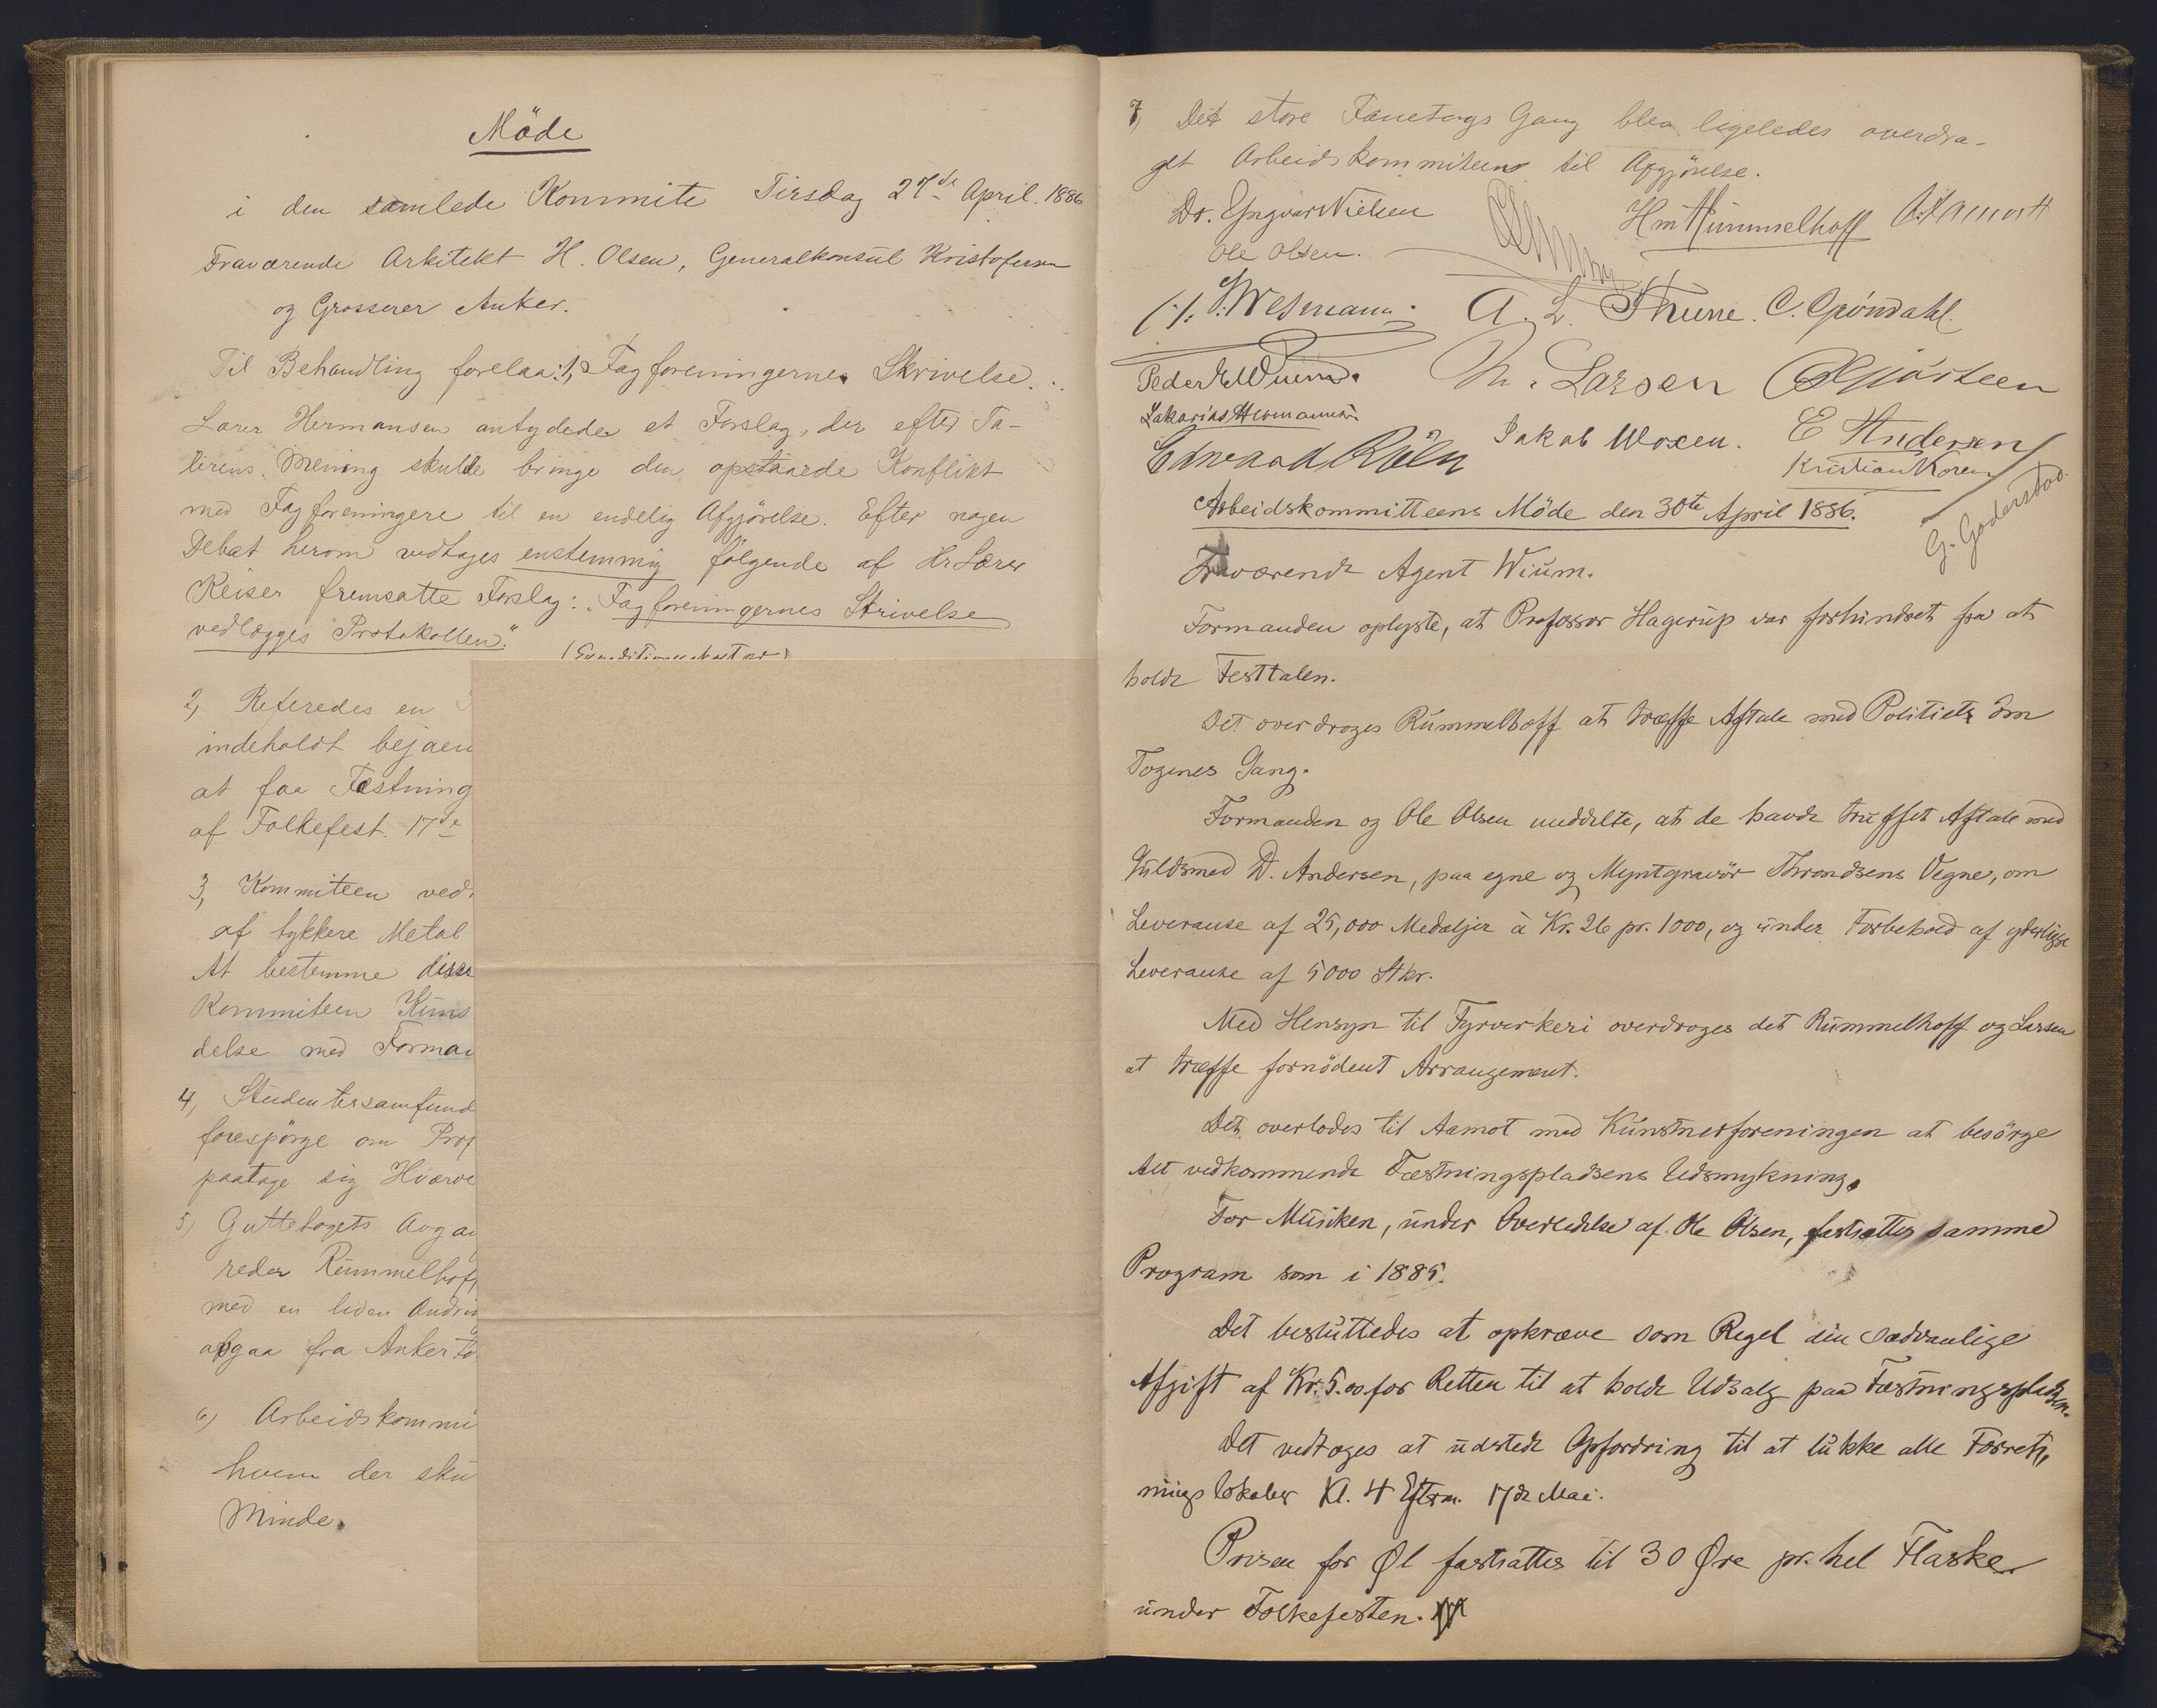 Möde
i den samlede Kommite Tirsdag 27de April. 1886
Fraværende Arkitekt H. Olsen, Generalkonsul Kristofersen
og Grosserer Anker.
Til Behandling forelaa: 1, Fagforeningernes Skrivelse.
Lærer Hermansen antydede et Forslag, der efter Ta-
lerens Mening skulde bringe den opstaaede Konflikt
med Fagforeningere til en endelig Afgjörelse. Efter nogen
Debat herom vedtages enstemmig fölgende af Hr Lærer
Keiser fremsatte Forslag: "Fagforeningernes Skrivelse
vedlægges Protokollen".
2, Referedes en
indeholdt bejaen
at faa Fæstning
af Folkefest. 17de
3, Kommiteen ved
af tykkere Metal
At bestemme disse
Kommiteen Kuns
delse med Forman
4, Studentersamfund
forespörge om Prof
paatage sig Hverve
5, Guttetogets Avga
redes Rummelhoff
med en liden Ændrin
afgaa fra Ankerto
6, Arbeidskommi
hvem der sku
Minde.
7, Det store Fanetogs Gang blev ligeledes overdra-
get Arbeidskommiteens til Afgjörelse.
Dr. Yngvar Nielsen
Hm Rummelhoff A. Aamot
Ole Olsen.
A. L. Thune. C. Gröndahl.
Th. Larsen
Zakarias Hermansen
Jakob Woxen. E Andersen
Edvard Röln
Kristian Koren
G. Gaderstad.
Arbeidskommitteens Möde den 30te April 1886.
Fraværende Agent Wium.
Formanden oplyste, at Professor Hagerup var forhindret fra at
holde Festtalen.
Det overdroges Rummelhoff at træffe Aftale med Politiet om
Togenes Gang.
Formanden og Ole Olsen meddelte, at de havde truffet Aftale med
Guldsmed D. Andersen, paa egne og Myntgravör Throndsens Vegne, om
Leveranse af 25,000 Medaljer à Kr. 26 pr. 1000, og under Forbehold af yderligere
Leveranse af 5000 Stkr.
Med Hensyn til Fyrverkeri overdroges det Rummelhoff og Larsen
at træffe fornödent Arrangement.
Det overlodes til Aamot med Kunstnerforeningen at besörge
Alt vedkommende Fæstningspladsens Udsmykning.
For Musiken, under Overledelse af Ole Olsen, fastsattes samme
Program som i 1885.
Det besluttedes at opkræve som Regel den sædvanlige
Afgift af Kr. 5.00 for Retten til at holde Udsalg paa Fæstningspladsen.
Det vedtoges at udstede Opfordring til at lukke alle Forret-
ningslokaler Kl. 4 Efterm. 17de Mai.
Prisen for Øl fastsattes til 30 Øre pr. hel Flaske
under Folkefesten.